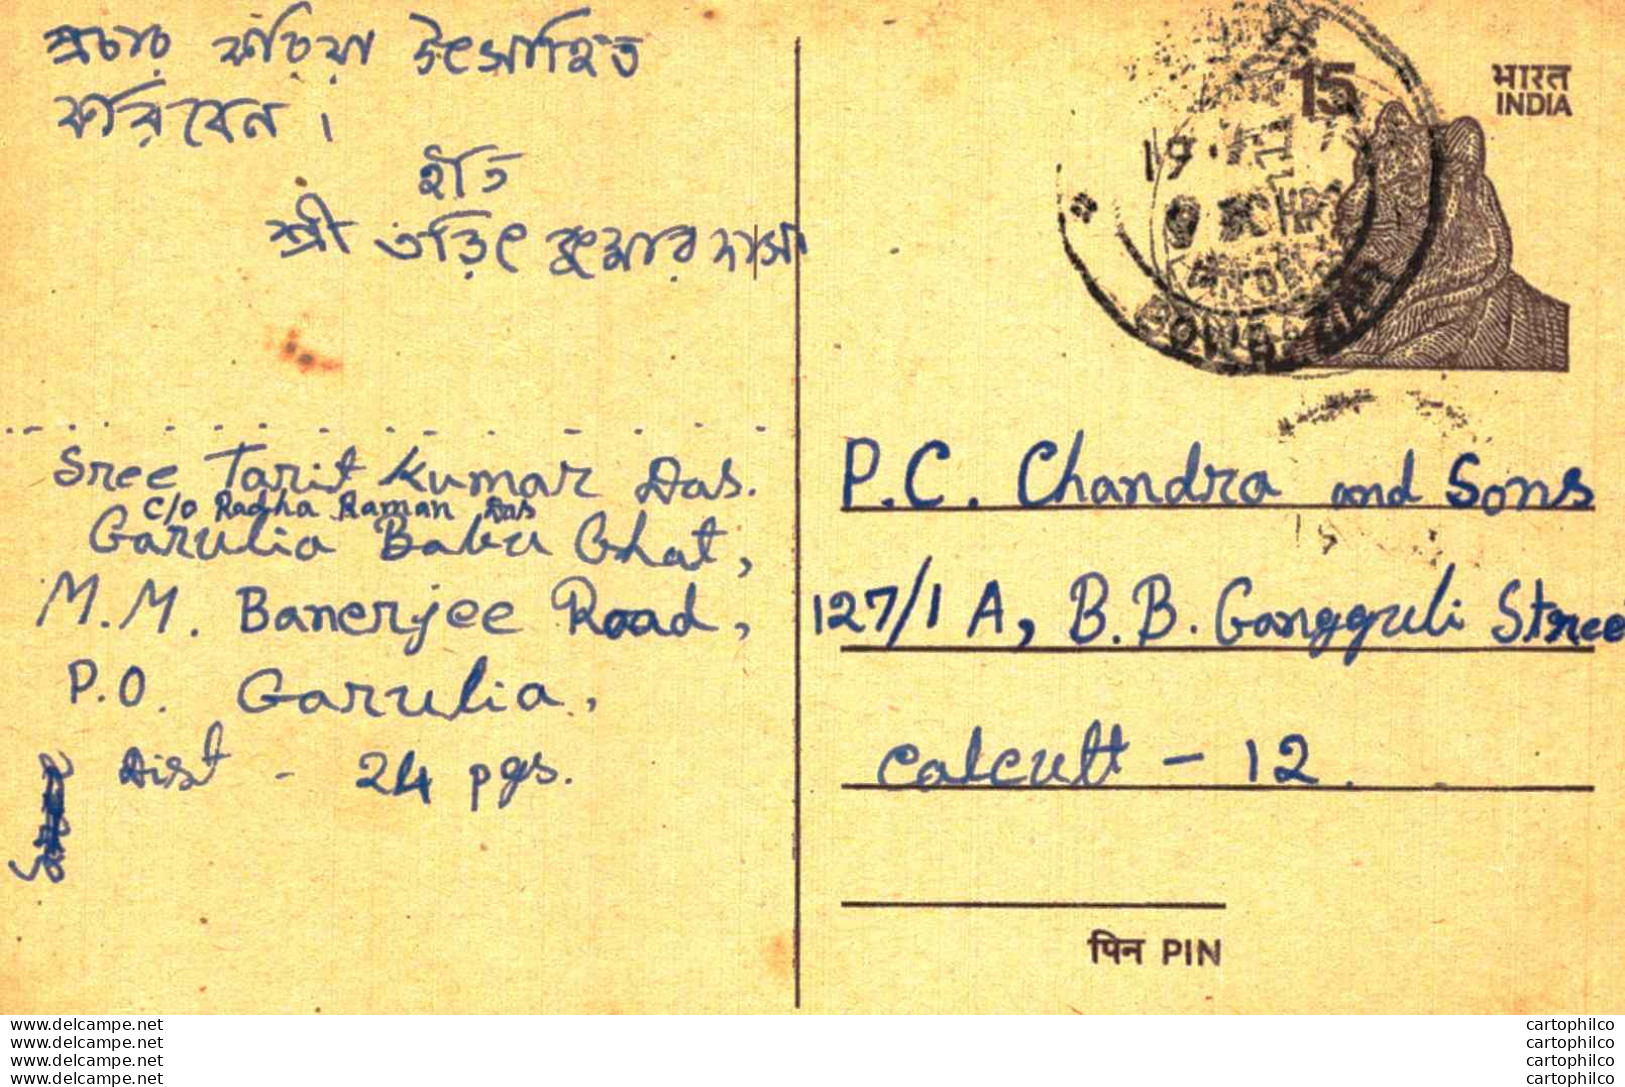 প্রচার করিয়া উৎসাহিত
করিবেন।
ইতি
শ্রী তড়িৎ কুমার দাস
Sree Tarit Kumar Das.
C/o Radha Raman Das
Garulia Babu Ghat,
M.M. Banerjee Road,
P.O. Garulia,
Dist - 24 pgs.
15
भारत
INDIA
19
BOWBAZAR
P.C. Chandra and Sons
127/1 A, B.B. Gongguli Stree
Calcutt - 12.
पिन PIN
www.delcampe.net
www.delcampe.net
www.delcampe.net
www.delcampe.net
cartophilco
cartophilco
cartophilco
cartophilco